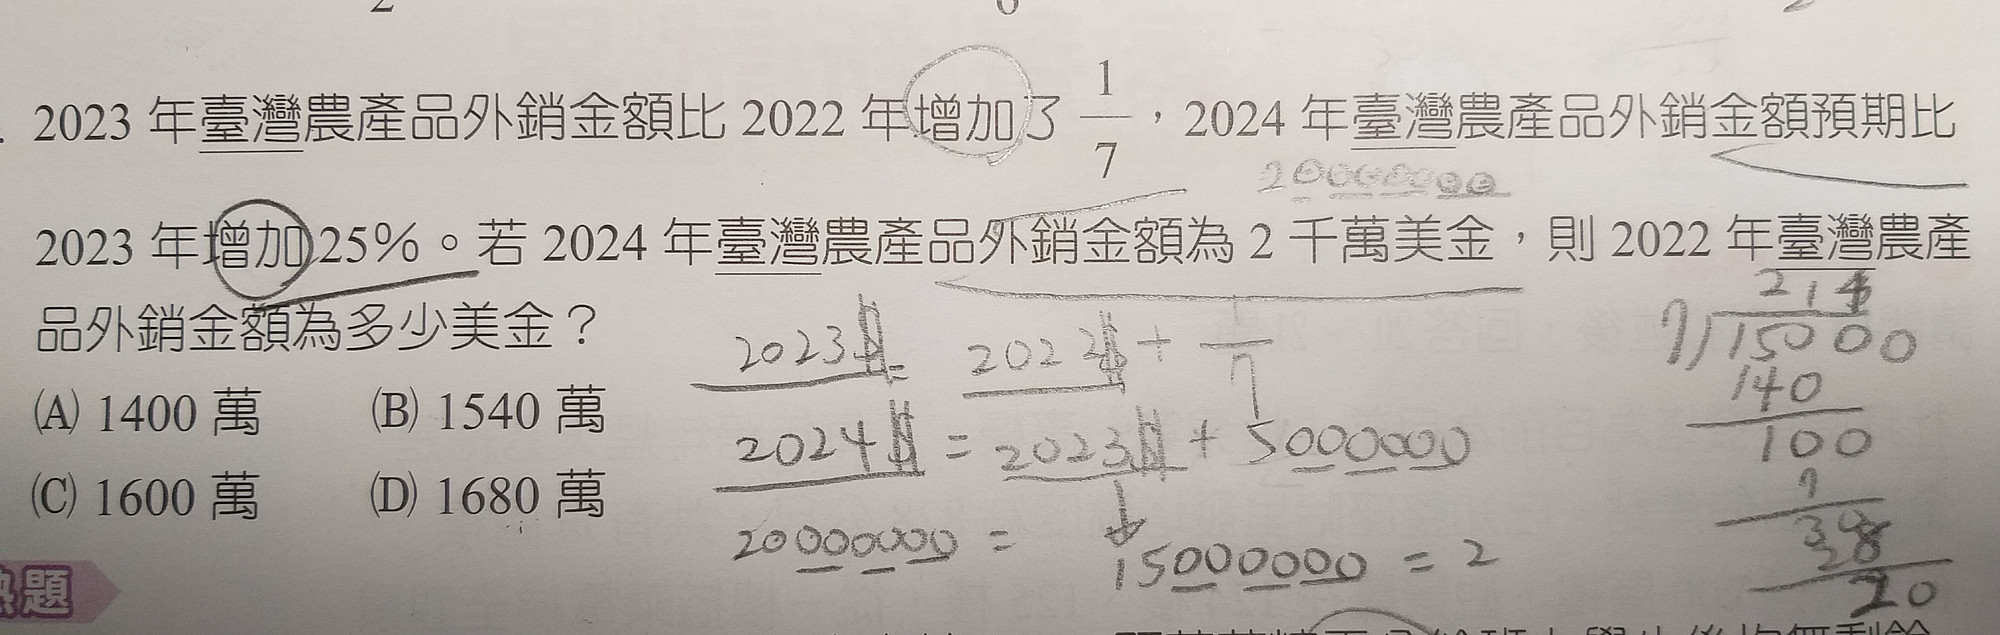 2023 年臺灣農產品外銷金額比 2022 年增加了 1/7，2024 年臺灣農產品外銷金額預期比
20000000
2023 年增加 25%。若 2024 年臺灣農產品外銷金額為 2 千萬美金，則 2022 年臺灣農產
品外銷金額為多少美金？
(A) 1400 萬 (B) 1540 萬
(C) 1600 萬 (D) 1680 萬
2023年 = 2022年 + 1/7
2024年 = 2023年 + 5000000
20000000 = 15000000 = 2
214
7)15000
140
100
7
38
28
20
熱題